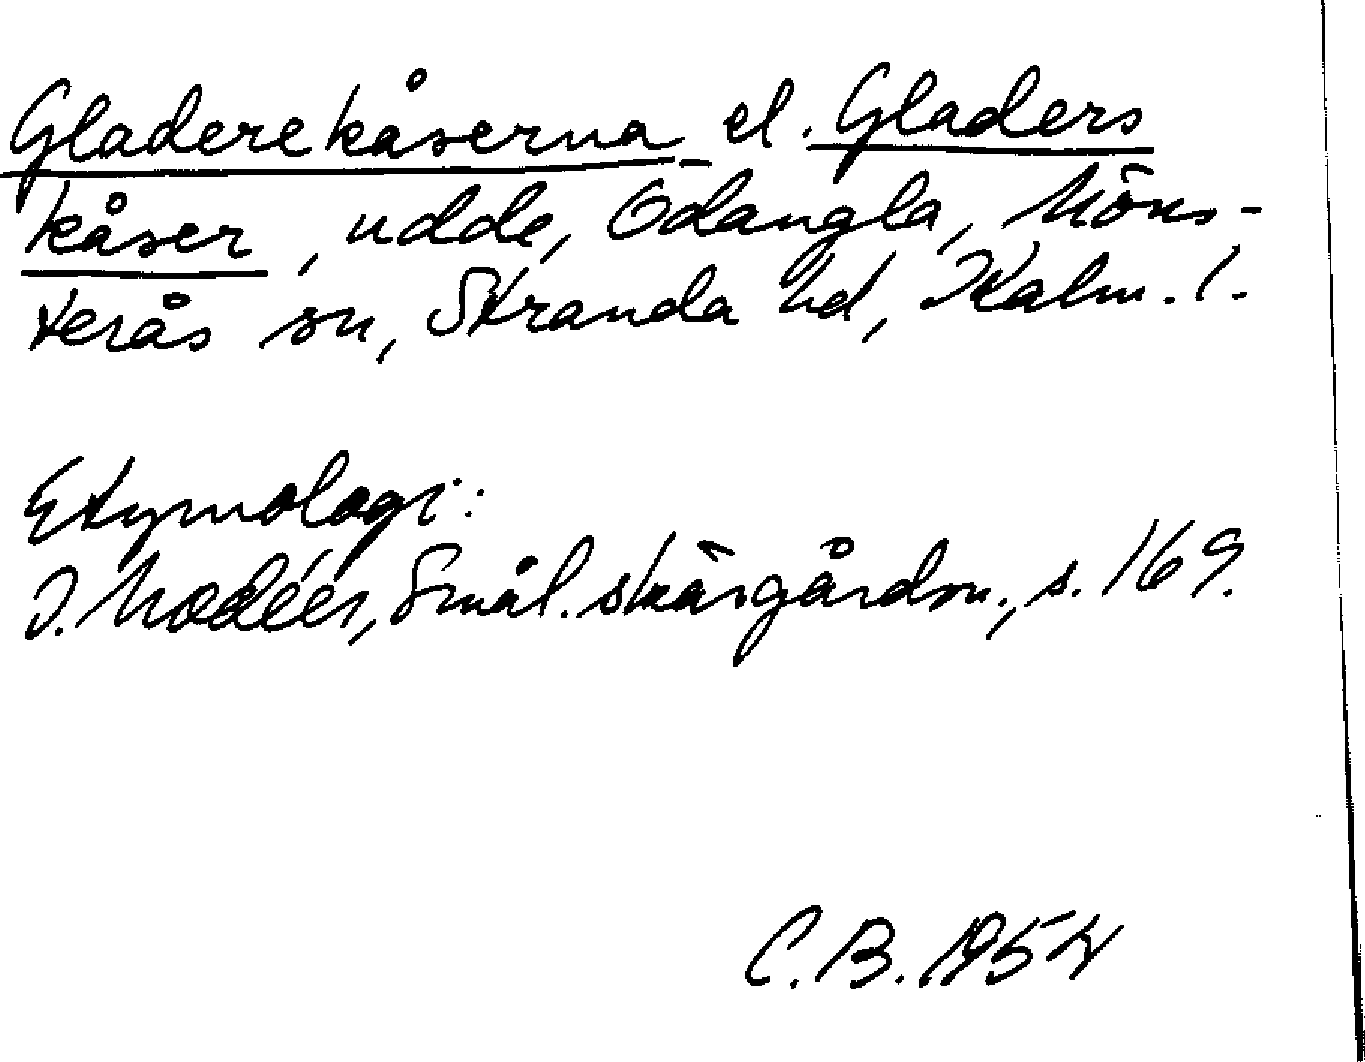 Gladerekåserna el. Gladers
kåser, udde, Ödängla, Möns-
terås sn, Stranda hd, Kalm. l.
Etymologi:
I. Modéer, Smål. skärgårdsn., s. 169.
C.B. 1954